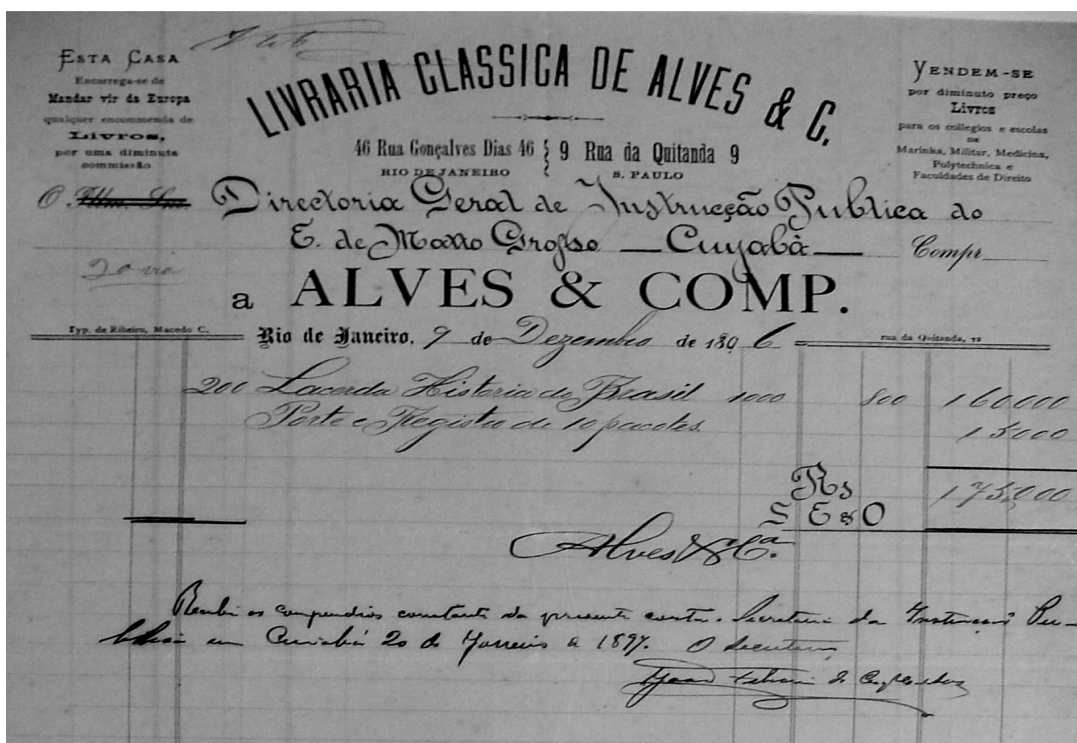 ESTA CASA
Encarrega-se de
Mandar vir da Europa
qualquer encommenda de
Livros,
por uma diminuta
commissão
LIVRARIA CLASSICA DE ALVES & C.
46 Rua Gonçalves Dias 46
RIO DE JANEIRO
9 Rua da Quitanda 9
S. PAULO
VENDEM-SE
por diminuto preço
Livros
para os collegios e escolas
DE
Marinha, Militar, Medicina,
Polytechnica e
Faculdades de Direito
O Illm. Snr. Directoria Geral de Instrucção Publica do
E. de Matto Grosso — Cuyabà — Compr
2a via
a ALVES & COMP.
Typ. de Ribeiro, Macedo C.
Rio de Janeiro, 9 de Dezembro de 1896
rua da Quitanda, 72
200 Lacerda Historia do Brasil 1000 800 160000
Porte e Registro de 10 pacotes. 15000
Rs 175000
S E & O
Alves & Cª.
Recebi os compendios constante da presente conta. Secretaria da Instrucçaõ Pu-
blica em Cuiabá 20 de Janeiro de 1897. O Secretario,